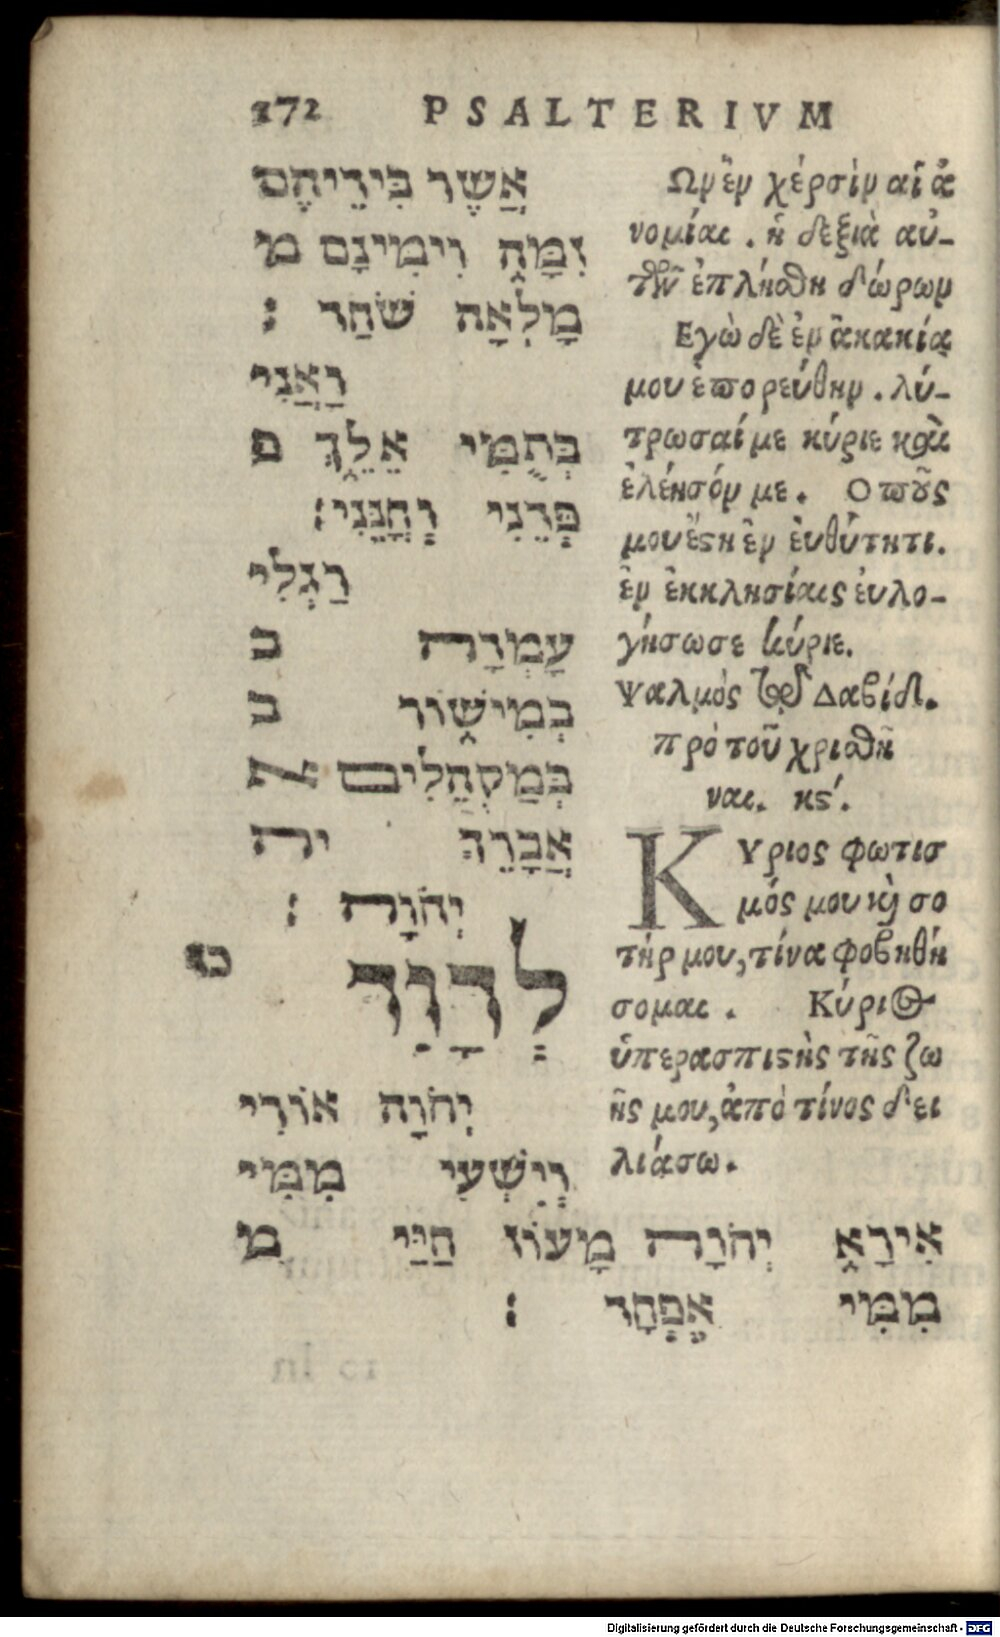 172 PSALTERIVM
אֲשֶׁר בִּידֵיהֶם
זִמָּה וִימִינָם מ
מָלְאָה שֹּׁחַד :
וַאֲנִי
בְּתֻמִּי אֵלֵךְ פ
פְּדֵנִי וְחָנֵּנִי:
רַגְלִי
עָמְדָה ב
בְמִישׁוֹר ב
בְּמַקְהֵלִים א
אֲבָרֵךְ יה
יְהֹוָה :
כז לְדָוִד
יְהֹוָה אוֹרִי
וְיִשְׁעִי מִמִּי
אִירָא יְהֹוָה מָעוֹז חַיַּי מ
מִמִּי אֶפְחָד :
Ωμ ἐμ χέρσὶμ αἱ ἀ
νομίαι . ἡ δεξιὰ αὐ-
τῶμ ἐπλήσθη δώρωμ
Εγὼ δὲ ἐμ ἀκακίᾳ
μου ἐπορεύθημ . λύ-
τρωσαί με κύριε καὶ
ἐλέησόμ με. Ο ποῦς
μου ἔστη ἐμ ἐυθύτητι.
ἐμ ἐκκλησίαις ἐυλο-
γήσωσε κύριε.
Ψαλμός τῷ Δαβίδ.
πρὸ τοῦ χρισθῆ
ναι. κς΄.
ΚΥριος φωτισ
μός μου καὶ σο
τήρ μου, τίνα φοβηθή
σομαι . Κύριος
ὑπερασπιστὴς τῆς ζω
ῆς μου, ἀπὸ τίνος δει
λιάσω.
Digitalisierung gefördert durch die Deutsche Forschungsgemeinschaft - DFG